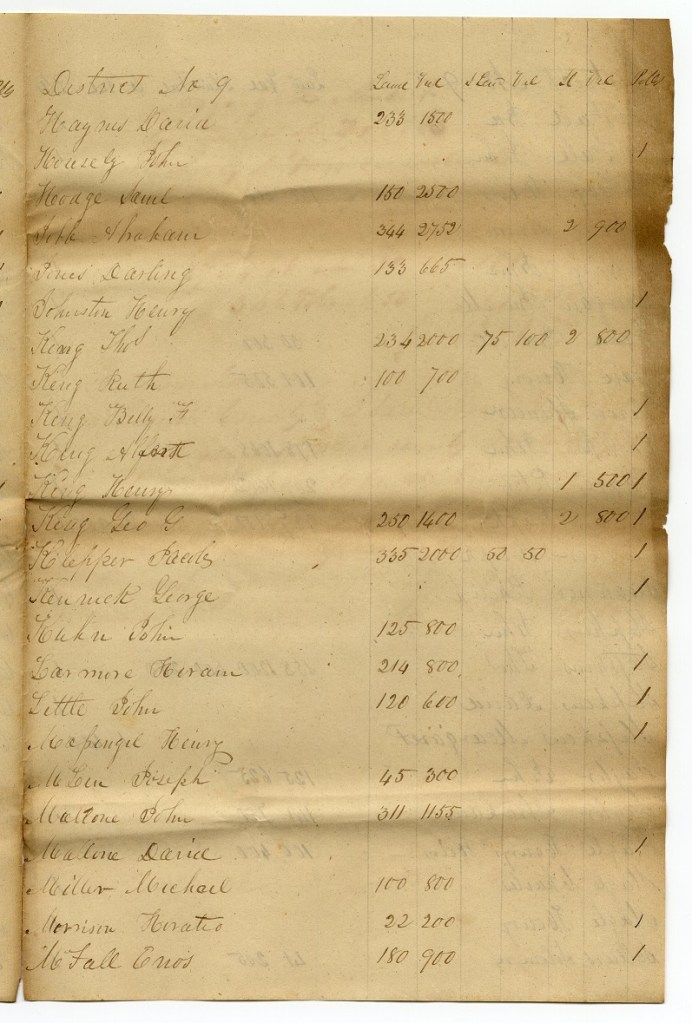 District No 9 Land Val S Lots Val Sl Val Polls
Haynes David 233 1500
Housely John 1
Hodge Saml 150 2500
Abraham 344 2752 2 900
Darling 133 665
Johnston Henry 1
King Thos 234 2000 75 100 2 800
King Ruth 100 700
King Billy F 1
King 1
King Henry 1 500 1
King Geo G 250 1400 2 800 1
Klepper Jacob 335 2000 50 50 1
George 1
John 125 800
Larmore Hiram 214 800 1
Little John 120 600 1
Henry 1
Joseph 45 300
Malone John 311 1155
Malone David 1
Miller Michael 100 800
Morrison Horatio 22 200 1
McFall Enos 180 900 1